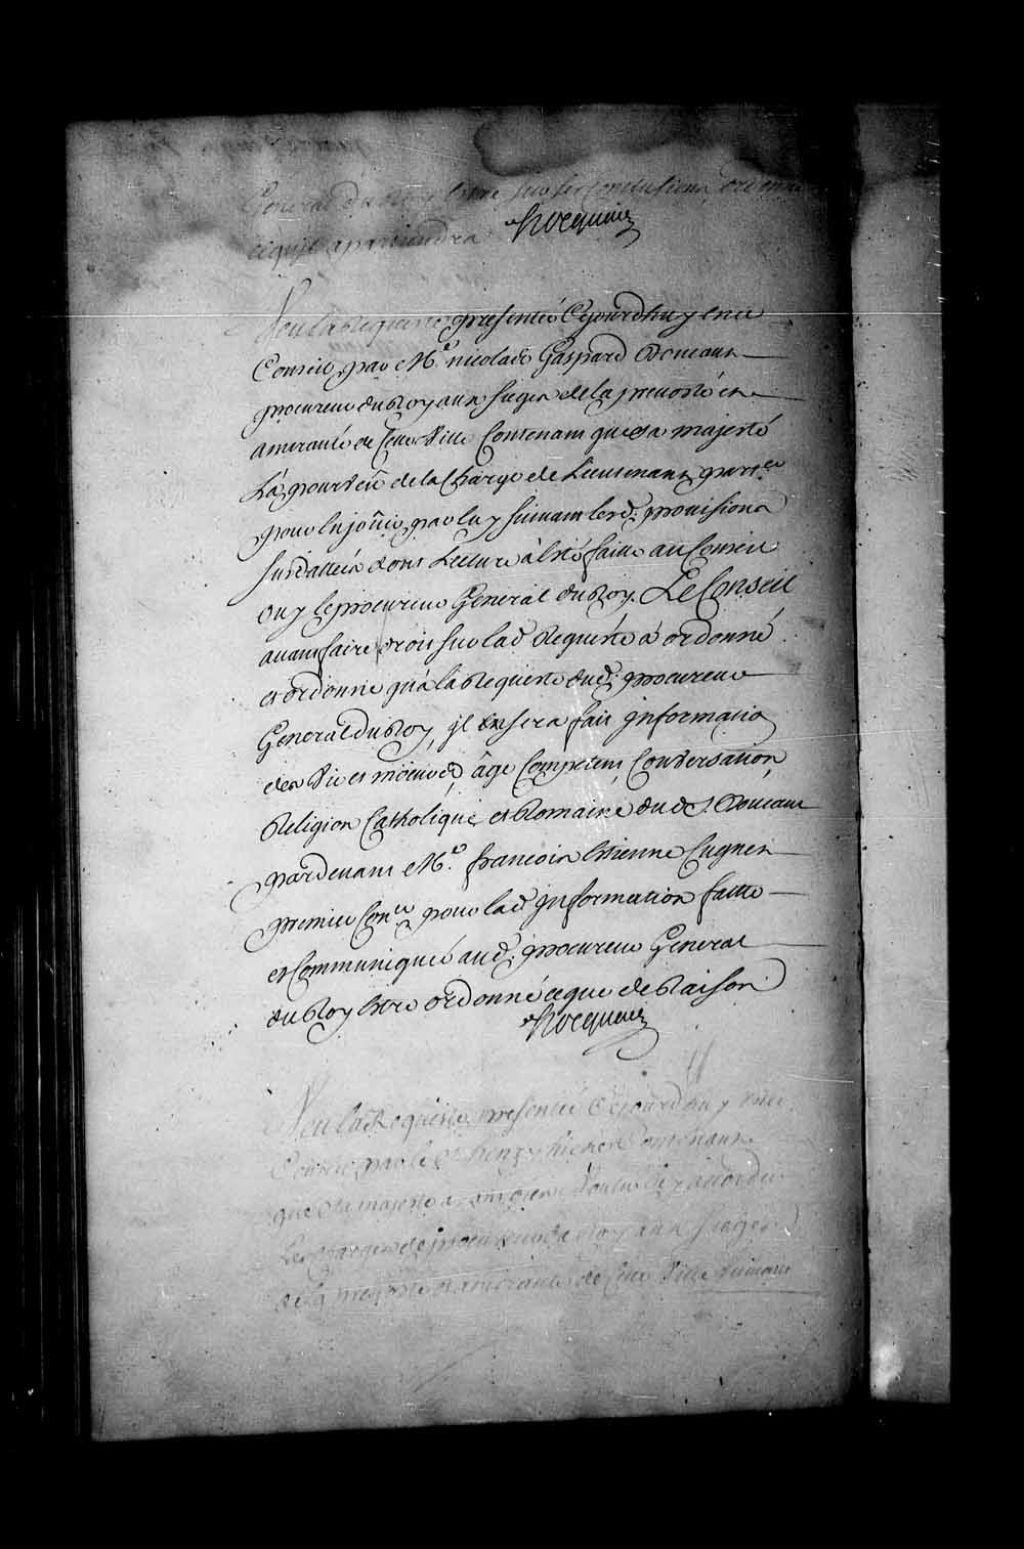 General du Roy Estre sur ses Conclusions ordonné
ce qu'il apartiendra Hocquart
Veu la Requeste presenteé Cejourd'huy en ce
Conseil par Me nicolas Gaspard Boucault
procureur du Roy aux sieges de la prevosté et
amirauté de Cette Ville Contenant que sa majesté
L'a pourveu de la Charge de Lieutenant part.er
pour En joüir par luy suivant lesd. provisions
susdattées dont Lecture a Esté faitte au Conseil
ouy le procureur General du Roy. Le Conseil
avant faire droit sur lad Requeste a ordonné
et ordonne qu'a la Requeste dud. procureur
General du Roy, il sera fait jnformatio
des Vie et moeurs, âge Competent, Conversation,
Religion Catholique et Romaine dud S. Boucault
pardevant Me. francois Estienne Cugnet
premier Con.er pour lad jnformation faitte
et Communiquée aud. procureur General
du Roy Estre ordonné ce que de Raison
Hocquart
Veu la Requeste presenteé Cejourd'huy en ce
Conseil par le Sr henry hiché Contenant
que Sa majesté a Voulu luy accorder
Les Charges de procureur du Roy aux sieges
de la prevosté et amirauté de Cette Ville Suivant